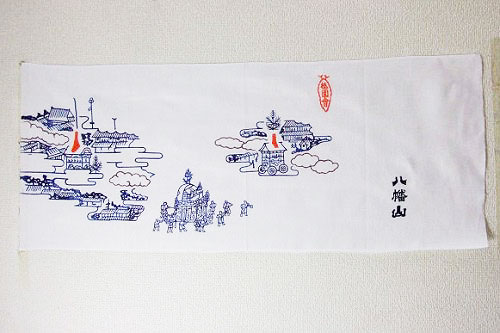 八幡山